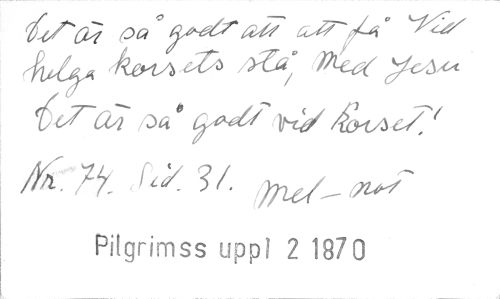 Det är så godt att att få Vid
helga korsets stå, Med Jesu
Det är så godt vid Korset!
Nr. 74. Sid. 31. mel-not
Pilgrimss uppl 2 1870